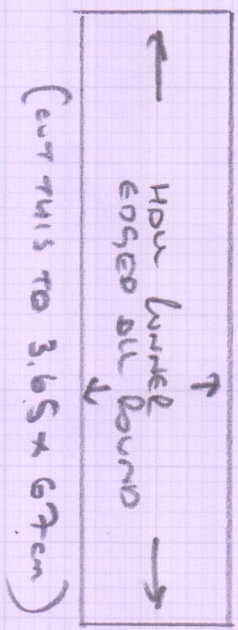 HALL RUNNER
EDGED ALL ROUND
(CUT THIS TO 3.65 x 67cm)